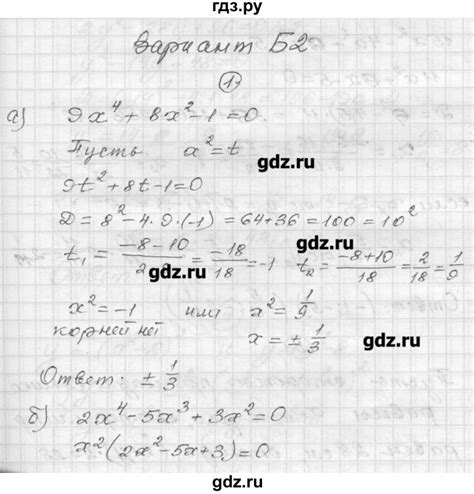 гдз.ру
Вариант Б2
1.
а) 9x⁴ + 8x² - 1 = 0
Пусть x² = t
gdz.ru
9t² + 8t - 1 = 0
gdz.ru
D = 8² - 4·9·(-1) = 64 + 36 = 100 = 10²
t₁ = (-8-10)/2 = -18/18 = -1 t₂ = (-8+10)/18 = 2/18 = 1/9
gdz.ru
x² = -1 или x² = 1/9
корней нет
x = ± 1/3
gdz.ru
Ответ: ± 1/3
gdz.ru
б) 2x⁴ - 5x³ + 3x² = 0
x²(2x² - 5x + 3) = 0
gdz.ru
gdz.ru